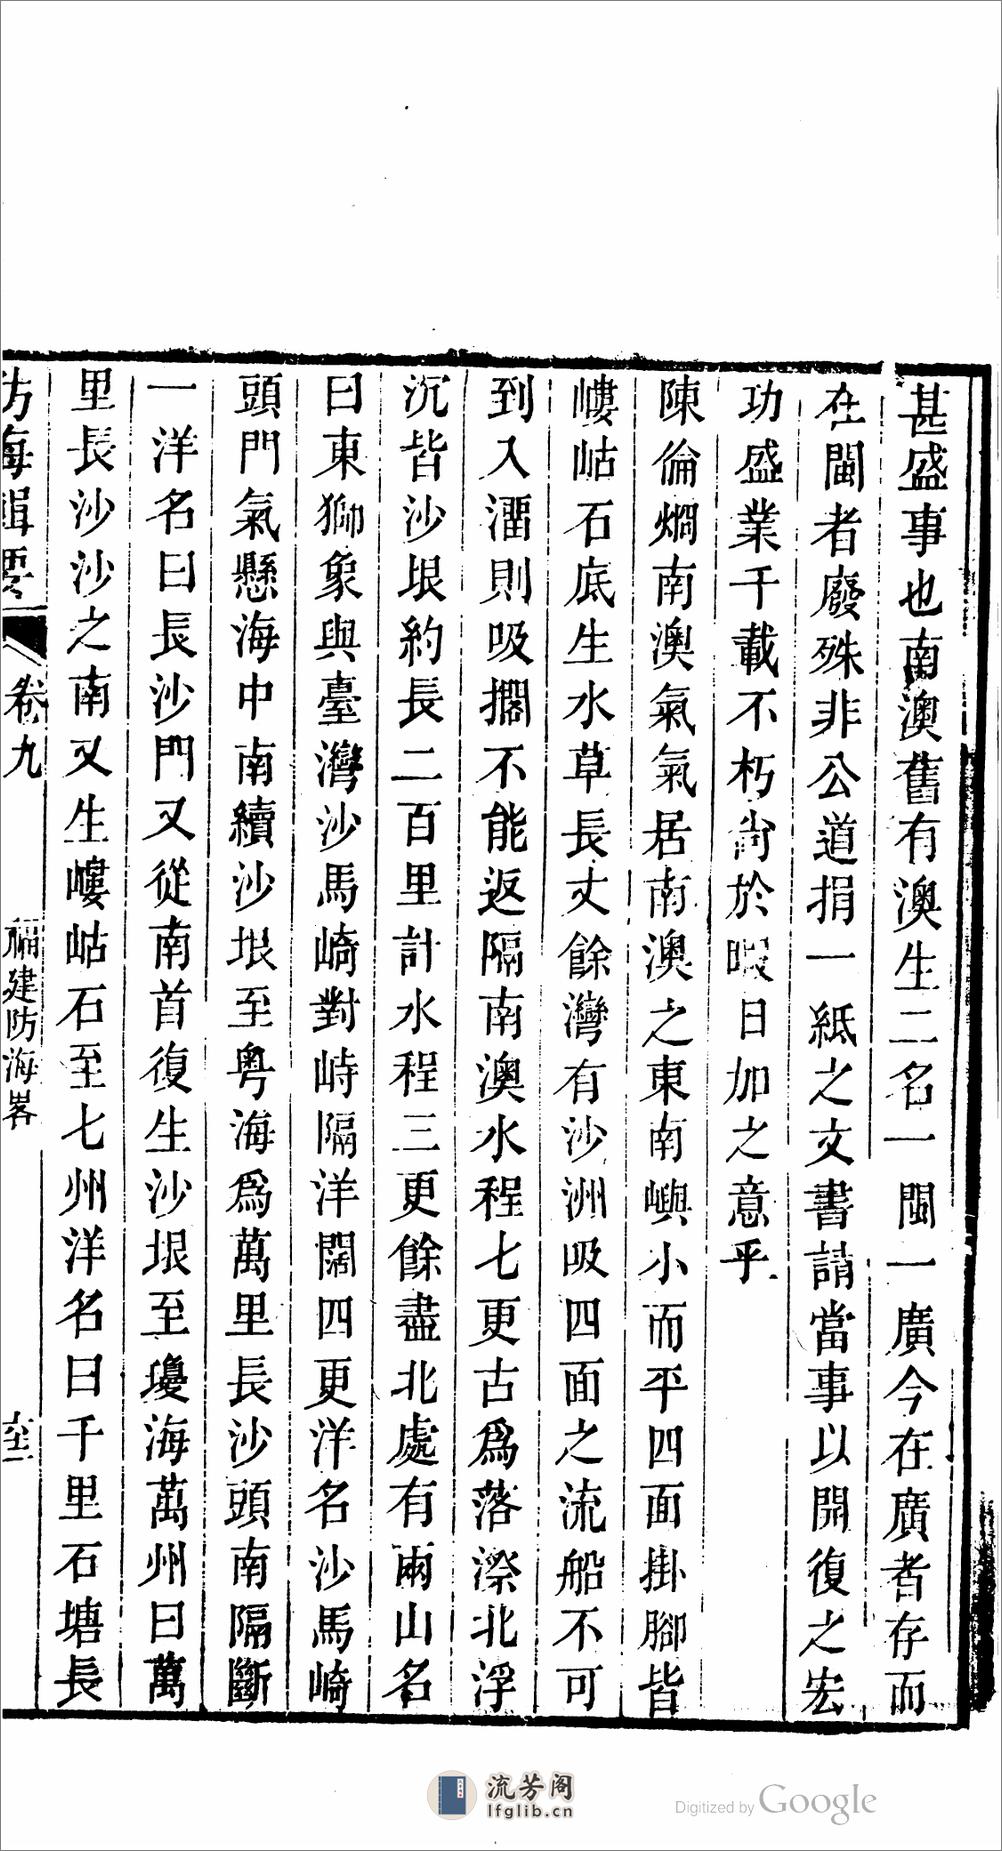 甚盛事也南澳舊有澳生二名一閩一廣今在廣者存而
在閩者廢殊非公道捐一紙之文書請當事以開復之宏
功盛業千載不朽尙於暇日加之意乎
陳倫烱南澳氣氣居南澳之東南嶼小而平四面掛腳皆
嶁岵石底生水草長丈餘灣有沙洲吸四面之流船不可
到入溜則吸擱不能返隔南澳水程七更古爲落漈北浮
沉皆沙垠約長二百里計水程三更餘盡北處有兩山名
曰東獅象與臺灣沙馬崎對峙隔洋闊四更洋名沙馬崎
頭門氣懸海中南續沙垠至粤海爲萬里長沙頭南隔斷
一洋名曰長沙門又從南首復生沙垠至瓊海萬州曰萬
里長沙沙之南又生嶁岵石至七州洋名曰千里石塘長
防海輯要
卷九
福建防海畧
流芳阁
lfglib.cn
Digitized by Google